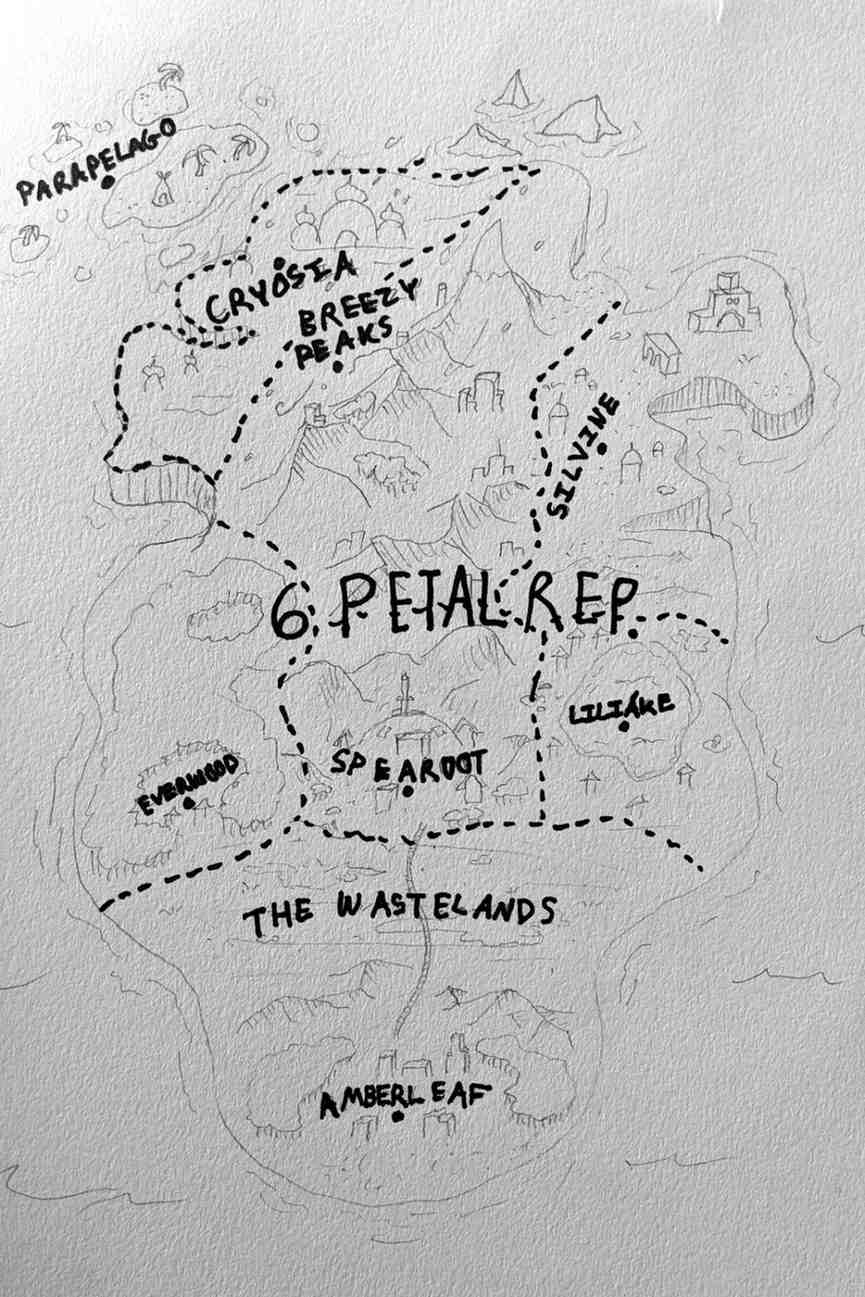 PARAPELAGO
CRYOSIA
BREEZY
PEAKS
SILVINE
6 PETAL REP.
LILIAKE
SPEAROOT
EVERWOOD
THE WASTELANDS
AMBERLEAF